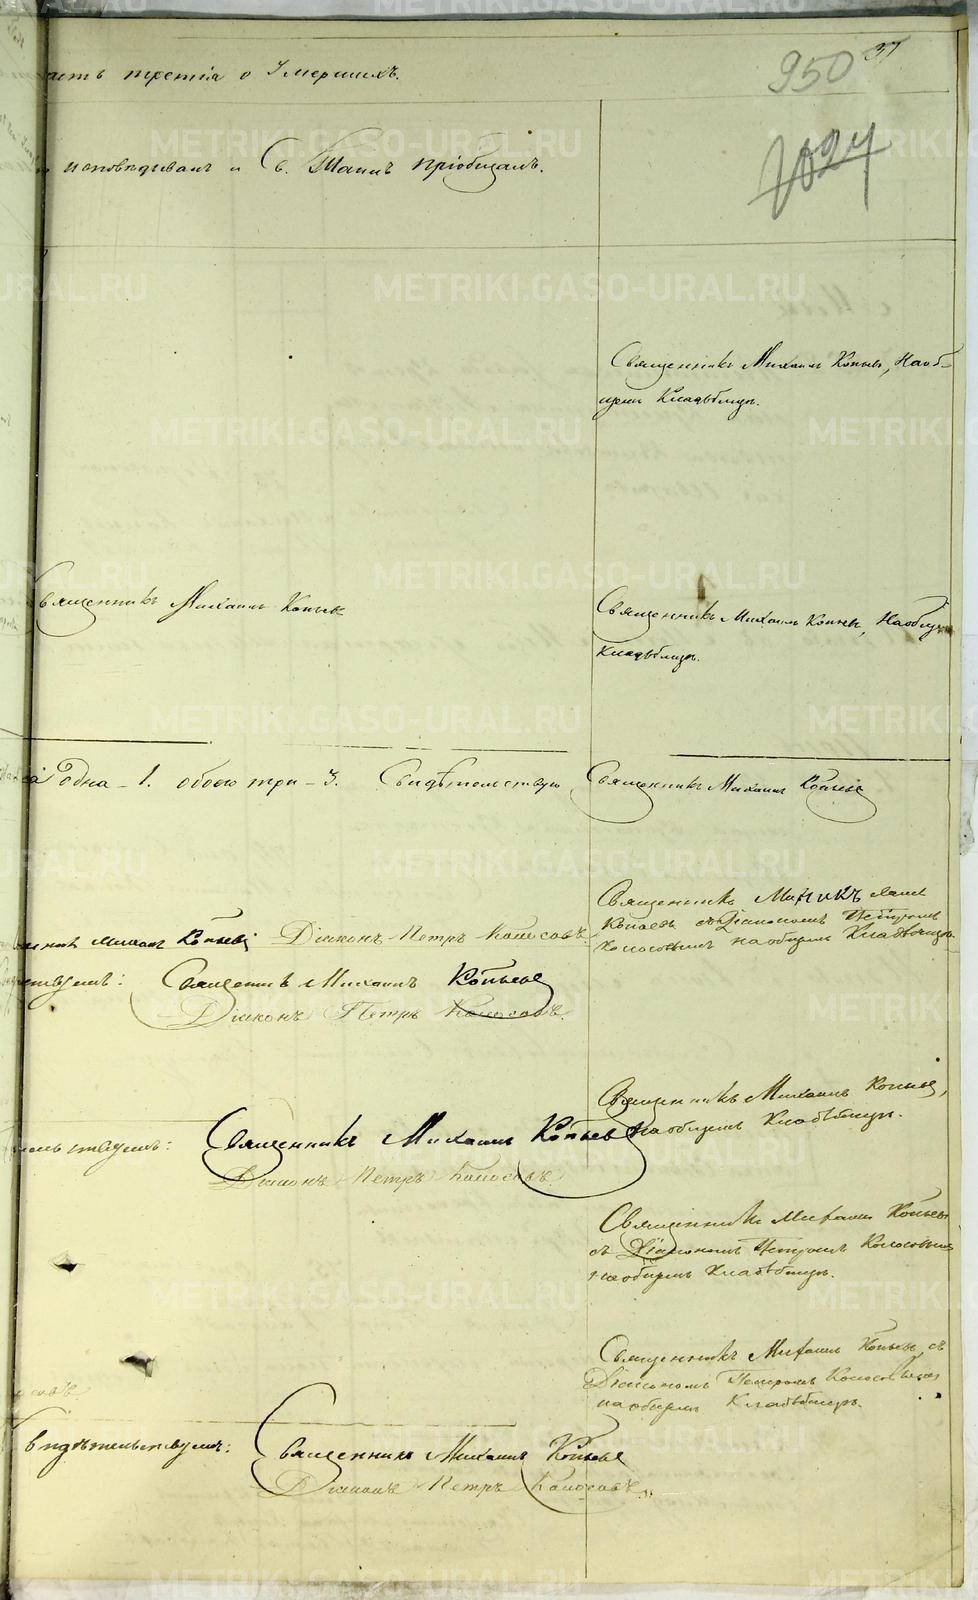 37
950
асть третія о Умершихъ.
1024
исповѣдывалъ и Св. Таинъ пріобщалъ.
Священникъ Михаилъ Копьев, На об-
щемъ Кладбищѣ.
Священникъ Михаилъ Копьев
Священникъ Михаилъ Копьев, На общ
Кладбищѣ.
Одна - 1. обоего три - 3. Свидѣтельствую Священникъ Михаилъ Копьев
Священникъ Михаил
Копьевъ съ Діакономъ Петромъ
Колосовымъ на общемъ Кладбищѣ
Михаил Копьев Діаконъ Петръ Колосовъ.
Священникъ Михаилъ Копьев
Діаконъ Петръ Колосовъ.
Священникъ Михаилъ Копьев,
на общемъ Кладбищѣ.
тельствуемъ: Священникъ Михаилъ Копьев
Діаконъ Петръ Колосовъ.
Священникъ Михаил Копьев
съ Діакономъ Петромъ Колосовым
на общемъ Кладбищѣ.
Священникъ Михаил Копьев съ
Діакономъ Петромъ Колосовым
на общемъ Кладбищѣ.
видѣтельствуемъ: Священникъ Михаилъ Копьев
Діаконъ Петръ Колосовъ.
METRIKI.GASO-URAL.RU